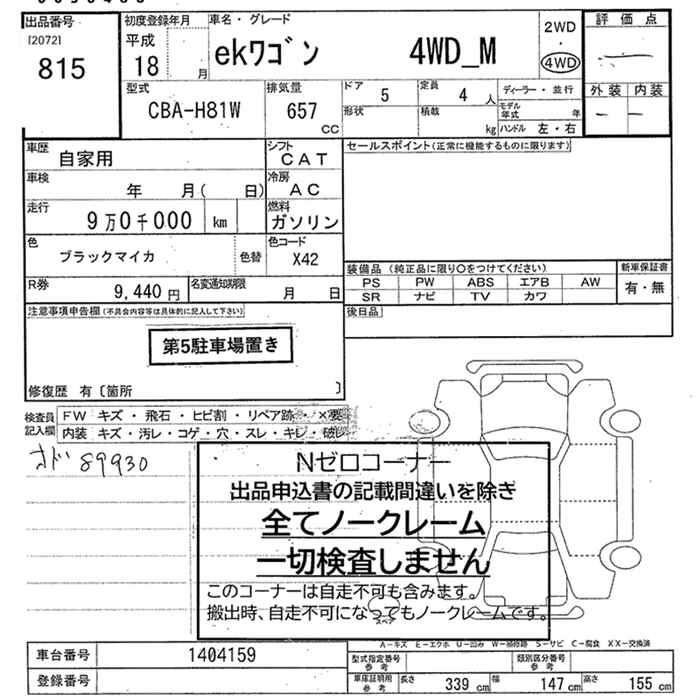 出品番号
[2072]
815
初度登録年月
平成
18 月
車名・グレード
ekワゴン 4WD_M
2WD
・
4WD
評価点
外装 内装
型式
CBA-H81W
排気量
657
cc
ドア
5
定員
4 人
ディーラー・並行
形状
積載
kg
モデル年式 年
ハンドル 左・右
車歴
自家用
シフト
CAT
セールスポイント(正常に機能するものに限ります)
車検
年 月( 日)
冷房
AC
走行
9万0千000 km
燃料
ガソリン
色
ブラックマイカ
色替
色コード
X42
装備品 (純正品に限り○をつけてください)
新車保証書
PS PW ABS エアB AW
SR ナビ TV カワ
有・無
R券
9,440 円
名変通知期限
月 日
注意事項申告欄(不具合内容等は具体的に記入して下さい)
後日品
第5駐車場置き
修復歴 有〔箇所 〕
検査員記入欄
FW キズ・飛石・ヒビ割・リペア跡・×要
内装 キズ・汚レ・コゲ・穴・スレ・キレ・破レ
オド 89930
Nゼロコーナー
出品申込書の記載間違いを除き
全てノークレーム
一切検査しません
このコーナーは自走不可も含みます。
搬出時、自走不可になってもノークレームです。
スペア
A-キズ E-エクボ U-凹み W-補修跡 S-サビ C-腐食 XX-交換済
車台番号
1404159
型式指定番号
参考
類別区分番号
参考
登録番号
車庫証明用
参考
長さ
339 cm
幅
147 cm
高さ
155 cm